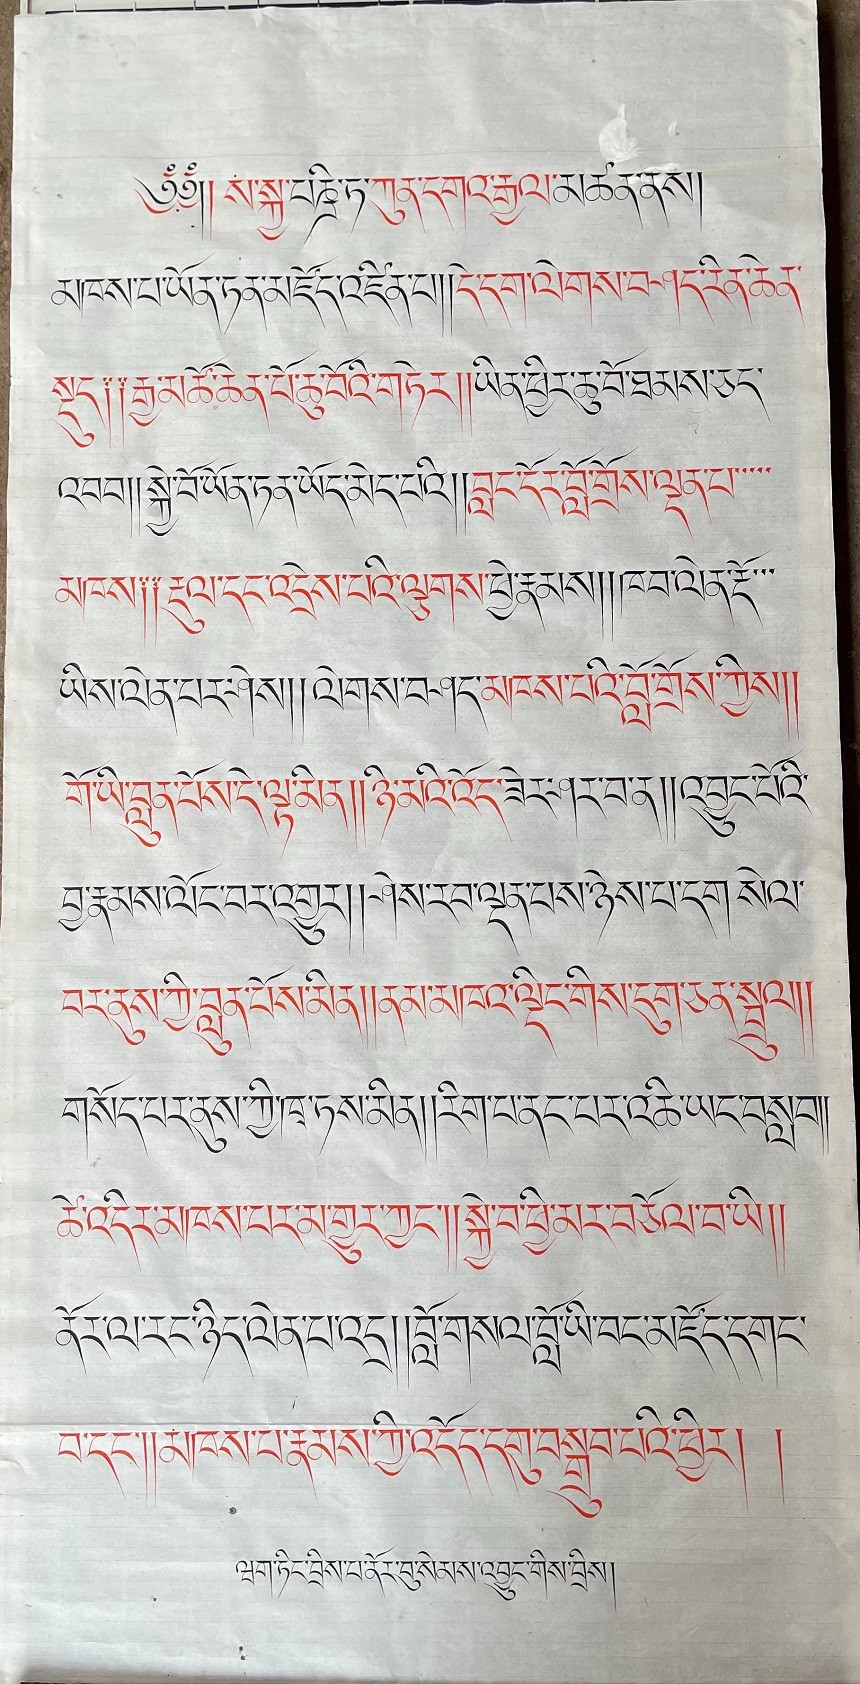 ༄༅།། ས་སྐྱ་པཎྜི་ཏ་ཀུན་དགའ་རྒྱལ་མཚན་ནས།
མཁས་པ་ཡོན་ཏན་མཛོད་འཛིན་པ།།དེ་དག་ལེགས་བཤད་རིན་ཆེན་
སྡུད༎རྒྱ་མཚོ་ཆེན་པོ་ཆུ་བོའི་གཏེར།།ཡིན་ཕྱིར་ཆུ་བོ་ཐམས་ཅད་
འབབ།།སྐྱེ་བོ་ཡོན་ཏན་ཡོད་མེད་པའི།།བླང་དོར་བློ་གྲོས་ལྡན་པ་་་་་
མཁས༎རྡུལ་དང་འདྲེས་པའི་ལྕགས་ཕྱེ་རྣམས།།ཁབ་ལེན་རྡོ་་་
ཡིས་ལེན་པར་ཤེས།།ལེགས་བཤད་མཁས་པའི་བློ་གྲོས་ཀྱིས།།
གོ་ཡི་བླུན་པོས་དེ་ལྟ་མིན།།ཉི་མའི་འོད་ཟེར་ཤར་བ་ན།།འབྱུང་པོའི་
བྱ་རྣམས་ལོང་བར་འགྱུར།།ཤེས་རབ་ལྡན་པས་ཉེས་པ་དག སེལ་
བར་ནུས་ཀྱི་བླུན་པོས་མིན།།ནམ་མཁའ་ལྡིང་གིས་དུག་ཅན་སྦྲུལ།།
གསོད་པར་ནུས་ཀྱི་ཁྭ་ཏས་མིན།།རིག་པ་ནང་པར་འཆི་ཡང་བསླབ།།
ཚེ་འདིར་མཁས་པར་མ་གྱུར་ཀྱང་།།སྐྱེ་བ་ཕྱི་མར་བཅོལ་བ་ཡི།།
ནོར་ལ་རང་ཉིད་ལེན་པ་འདྲ།།བློ་གསལ་བློ་ཡི་བང་མཛོད་དགང་
བ་དང་།།མཁས་པ་རྣམས་ཀྱི་འདོད་དགུ་བསྒྲུབ་པའི་ཕྱིར། །
ལྷག་ཏིང་བྲིས་པ་ནོར་བུ་སེམས་འབྱུང་གིས་བྲིས།